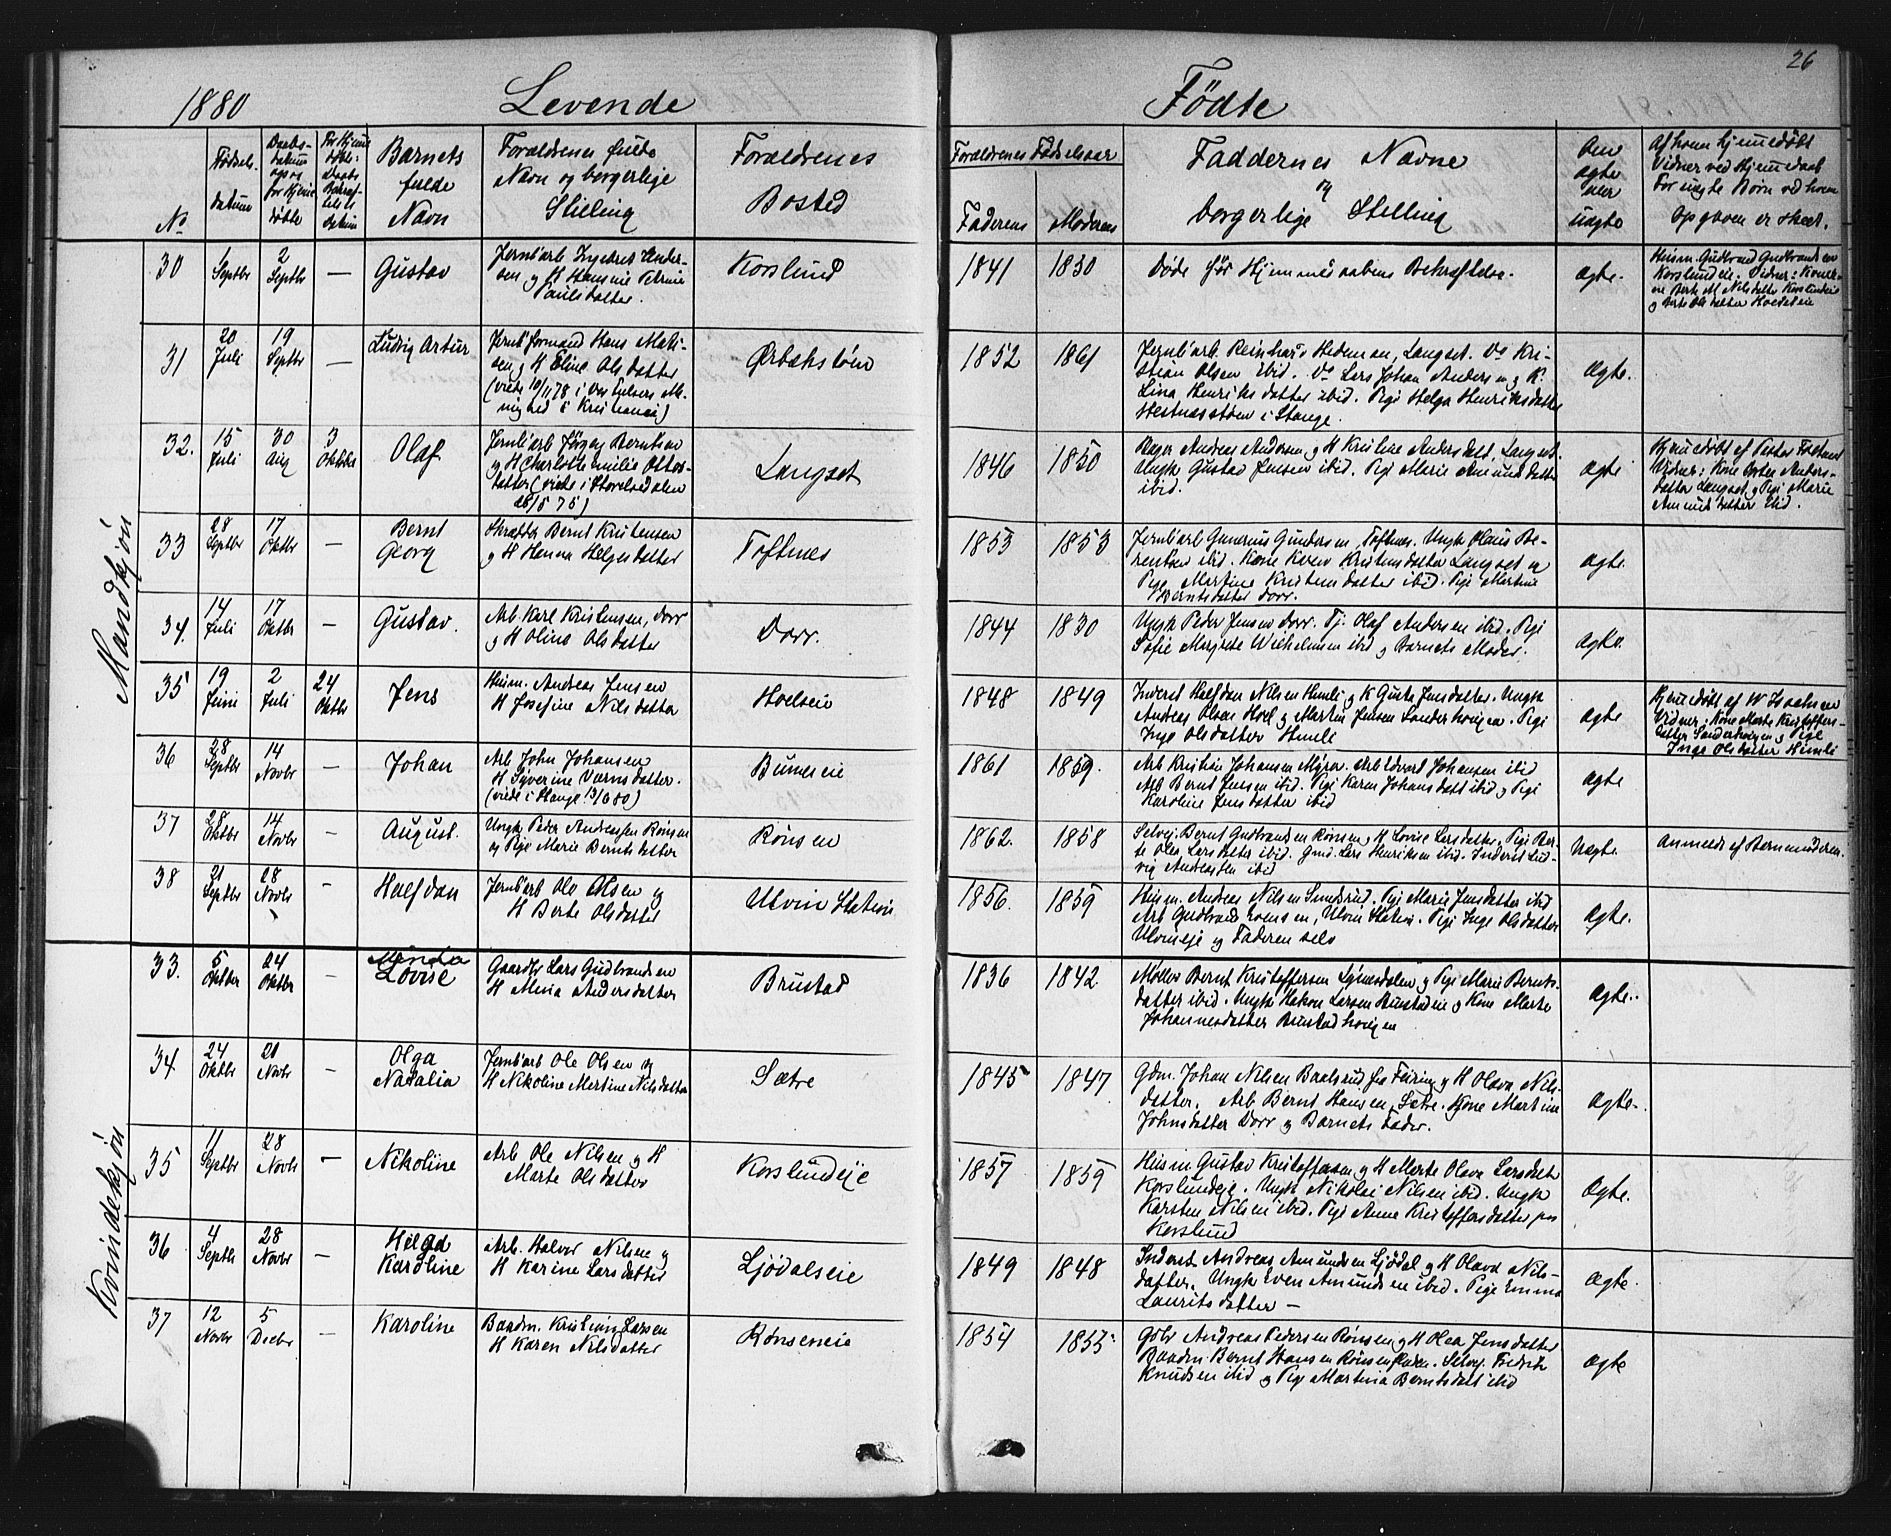 26
1880 Levende Fødte
No
Fødsels-
datum
Daabs-
datum
Barnets
fulde
Navn
Forældrenes fulde
Navn og borgerlige
Stilling
Forældrenes
Bosted
Forældrenes Fødselsaar
Faderens
Moderens
Faddernes Navne
og
borgerlige Stilling
ægte
eller
uægte
Af hvem hjemmedøbt
Vidner ved Hjemmedaab
For uægte Børn ved hvem
Opgaven er skeet.
Mandkjøn
30
1
Septbr
2
Septbr
—
Gustav
sen og H Hansine Petrine
Paulsdatter.
Korslund
1841
1830
Døde før Hjemmedaabens Bekræftelse.
ægte.
Husm. Gudbrand Gudbrandsen
31
20
Juli
19
Septbr
—
Ludvig Artur
Jernb.formand Hans Mati-
sen og H Eline Olsdatter
Ørbækstøen
1852
1861
Jernb.arb. Reinhard Hedeman, Langset. Do Kri-
stian Olsen ibid. Do Lars Johan Andersen og K.
Lina Henriksdatter ibid. Pige Helga Henriksdatter
Hestnæsstøen i Stange.
ægte.
32.
15
Juli
30
Aug
3
Oktbr
Olaf
Jernb.arb Jørgen Berntsen
og H Charlotte Emilie Ottos-
datter (viede i Storelvedalen
26/5 75)
Langset
1846
1850
Bager Andreas Andersen og H Kristine Andersdatt, Langset.
Ungk Gustav Jensen ibid. Pige Marie Amundsdatter
ibid.
ægte
datter Langset og Pige Marie
Amundsdatter ibid.
33
28
Septbr
17
Oktbr
—
Bernt
Georg
Skrædder Bernt Kristensen
og H Hanna Helgesdatter
Toftnes
1853
1853
Jernb'arb Gunerius Gundersen, Toftnes. Ungk Olaus Be-
rentsen ibid. Kone Karen Kristensdatter Langset og
Pige Martine Kristensdatter ibid. Pige Martine
Berntsdatter Dorr.
ægte.
34.
14
Juli
17
Oktbr
—
Gustav.
Arb Karl Kristensen, Dorr
og H Oline Olsdatter
Dorr.
1844
1830
Ungk Peder Jensen Dorr. Tj. Olaf Andersen ibid. Pige
Sofie Margrete Wilhelmsen ibid og Barnets Moder.
ægte.
35
19
Juni
2
Juli
24
Oktbr
Jens
Husm. Andreas Jensen
H Josefine Nilsdatter
Hoelseie
1848
1849
Inderst Halfdan Nilsen Himli og K Gurte Jensdatter. Ungk
Andreas Olsen Hoel og Martin Jensen Sanderhougen. Pige
Inge Olsdatter Himle
ægte
Vidner: Kone Marte Kristoffers-
datter Sanderhougen og Pige
Inge Olsdatter Himli
36
28
Septbr
14
Novbr
—
Johan
Arb John Johansen
H Syverine Værnsdatter.
(viede i Stange 13/6 80)
Buneseie
1861
1859.
Arb Kristian Johansen Myra. Arb Edvard Johansen ibid
Arb Bernt Jensen ibid. Pige Karen Johansdatt ibid og Pige
Karoline Jensdatter ibid
ægte
37
28
Oktbr
14
Novbr
—
August.
Ungk Peder Andreassen Rønsen
og Pige Marie Berntsdatter
Rønsen
1862.
1858
Selvej. Bernt Gudbrandsen Rønsen og H Lovise Larsdatter, Pige Ber-
te Olea Larsdatter ibid. Gmd. Lars Henriksen ibid. Inderst Lud-
vig Andreassen ibid
Uægte.
Anmeldt af Barnemoderen.
38
21
Septbr
28
Novbr
—
Halfdan
Jernb'arb Ole Olsen og
H Berte Olsdatter
Ulvin Station
1856.
1859
Husm. Andreas Nilsen Smedsrud. Pige Marie Jensdatter ibid
Arb Gudbrand Evensen, Ulvin Station. Pige Inge Olsdatter
Ulvinseje og Faderen selv
ægte.
Kvindekjøn
33.
5
Oktober
24
Oktbr
—
Minda
Lovise
Gaardbr Lars Gudbrandsen
H Mina Andersdatter
Brustad
1836
1842
Møller Bernt Kristoffersen Lynesdalen og Pige Marie Bernts-
datter ibid. Ungk Hakon Larsen Brustadeie og Kone Marte
Johannesdatter Brustadhougen
ægte.
34.
24
Oktbr
21
Novbr
—
Olga
Natalia
Jernb'arb Ole Olsen og
H Nikoline Martine Nilsdatter
Sætre
1845
1847
Gdm. Johan Nilsen Baalsrud fra Feiring og H Olava Nils-
datter. Arb Bernt Hansen, Sætre. Kone Martine
Johnsdatter Dorr og Barnets Fader.
ægte.
35
11
Septbr
28
Novbr
—
Nikoline
Arb Ole Nilsen og H
Marte Olsdatter
Korslundeje
1857
1859
Husm Gustav Kristoffersen og H Marte Olava Larsdatt
Korslundeje. Ungk Nikolai Nilsen ibid. Ungk
Karsten Nilsen ibid. Pige Anne Kristoffersdatter paa
Korslund
ægte.
36
4
Septbr
28
Novbr
—
Helga
Karoline
Arb. Halvor Nilsen og
H Karine Larsdatter
Ljødalseie
1849
1848
Inderst Andreas Amundsen Ljødal og H Olava Nils-
datter. Ungk Even Amundsen ibid. Pige Emma
Lauritsdatter —
ægte.
37
12
Novbr
5
Decbr
—
Karoline
Baadm. Kristian Larsen
H Karen Nilsdatter
Rønseneie
1854
1855
Gdbr Andreas Pedersen Rønsen og H Olea Jensdatter
Baadm. Bernt Hansen Rønsen Enden. Selvej. Fredrik
Knudsen ibid og Pige Martina Berntsdatt ibid
ægte